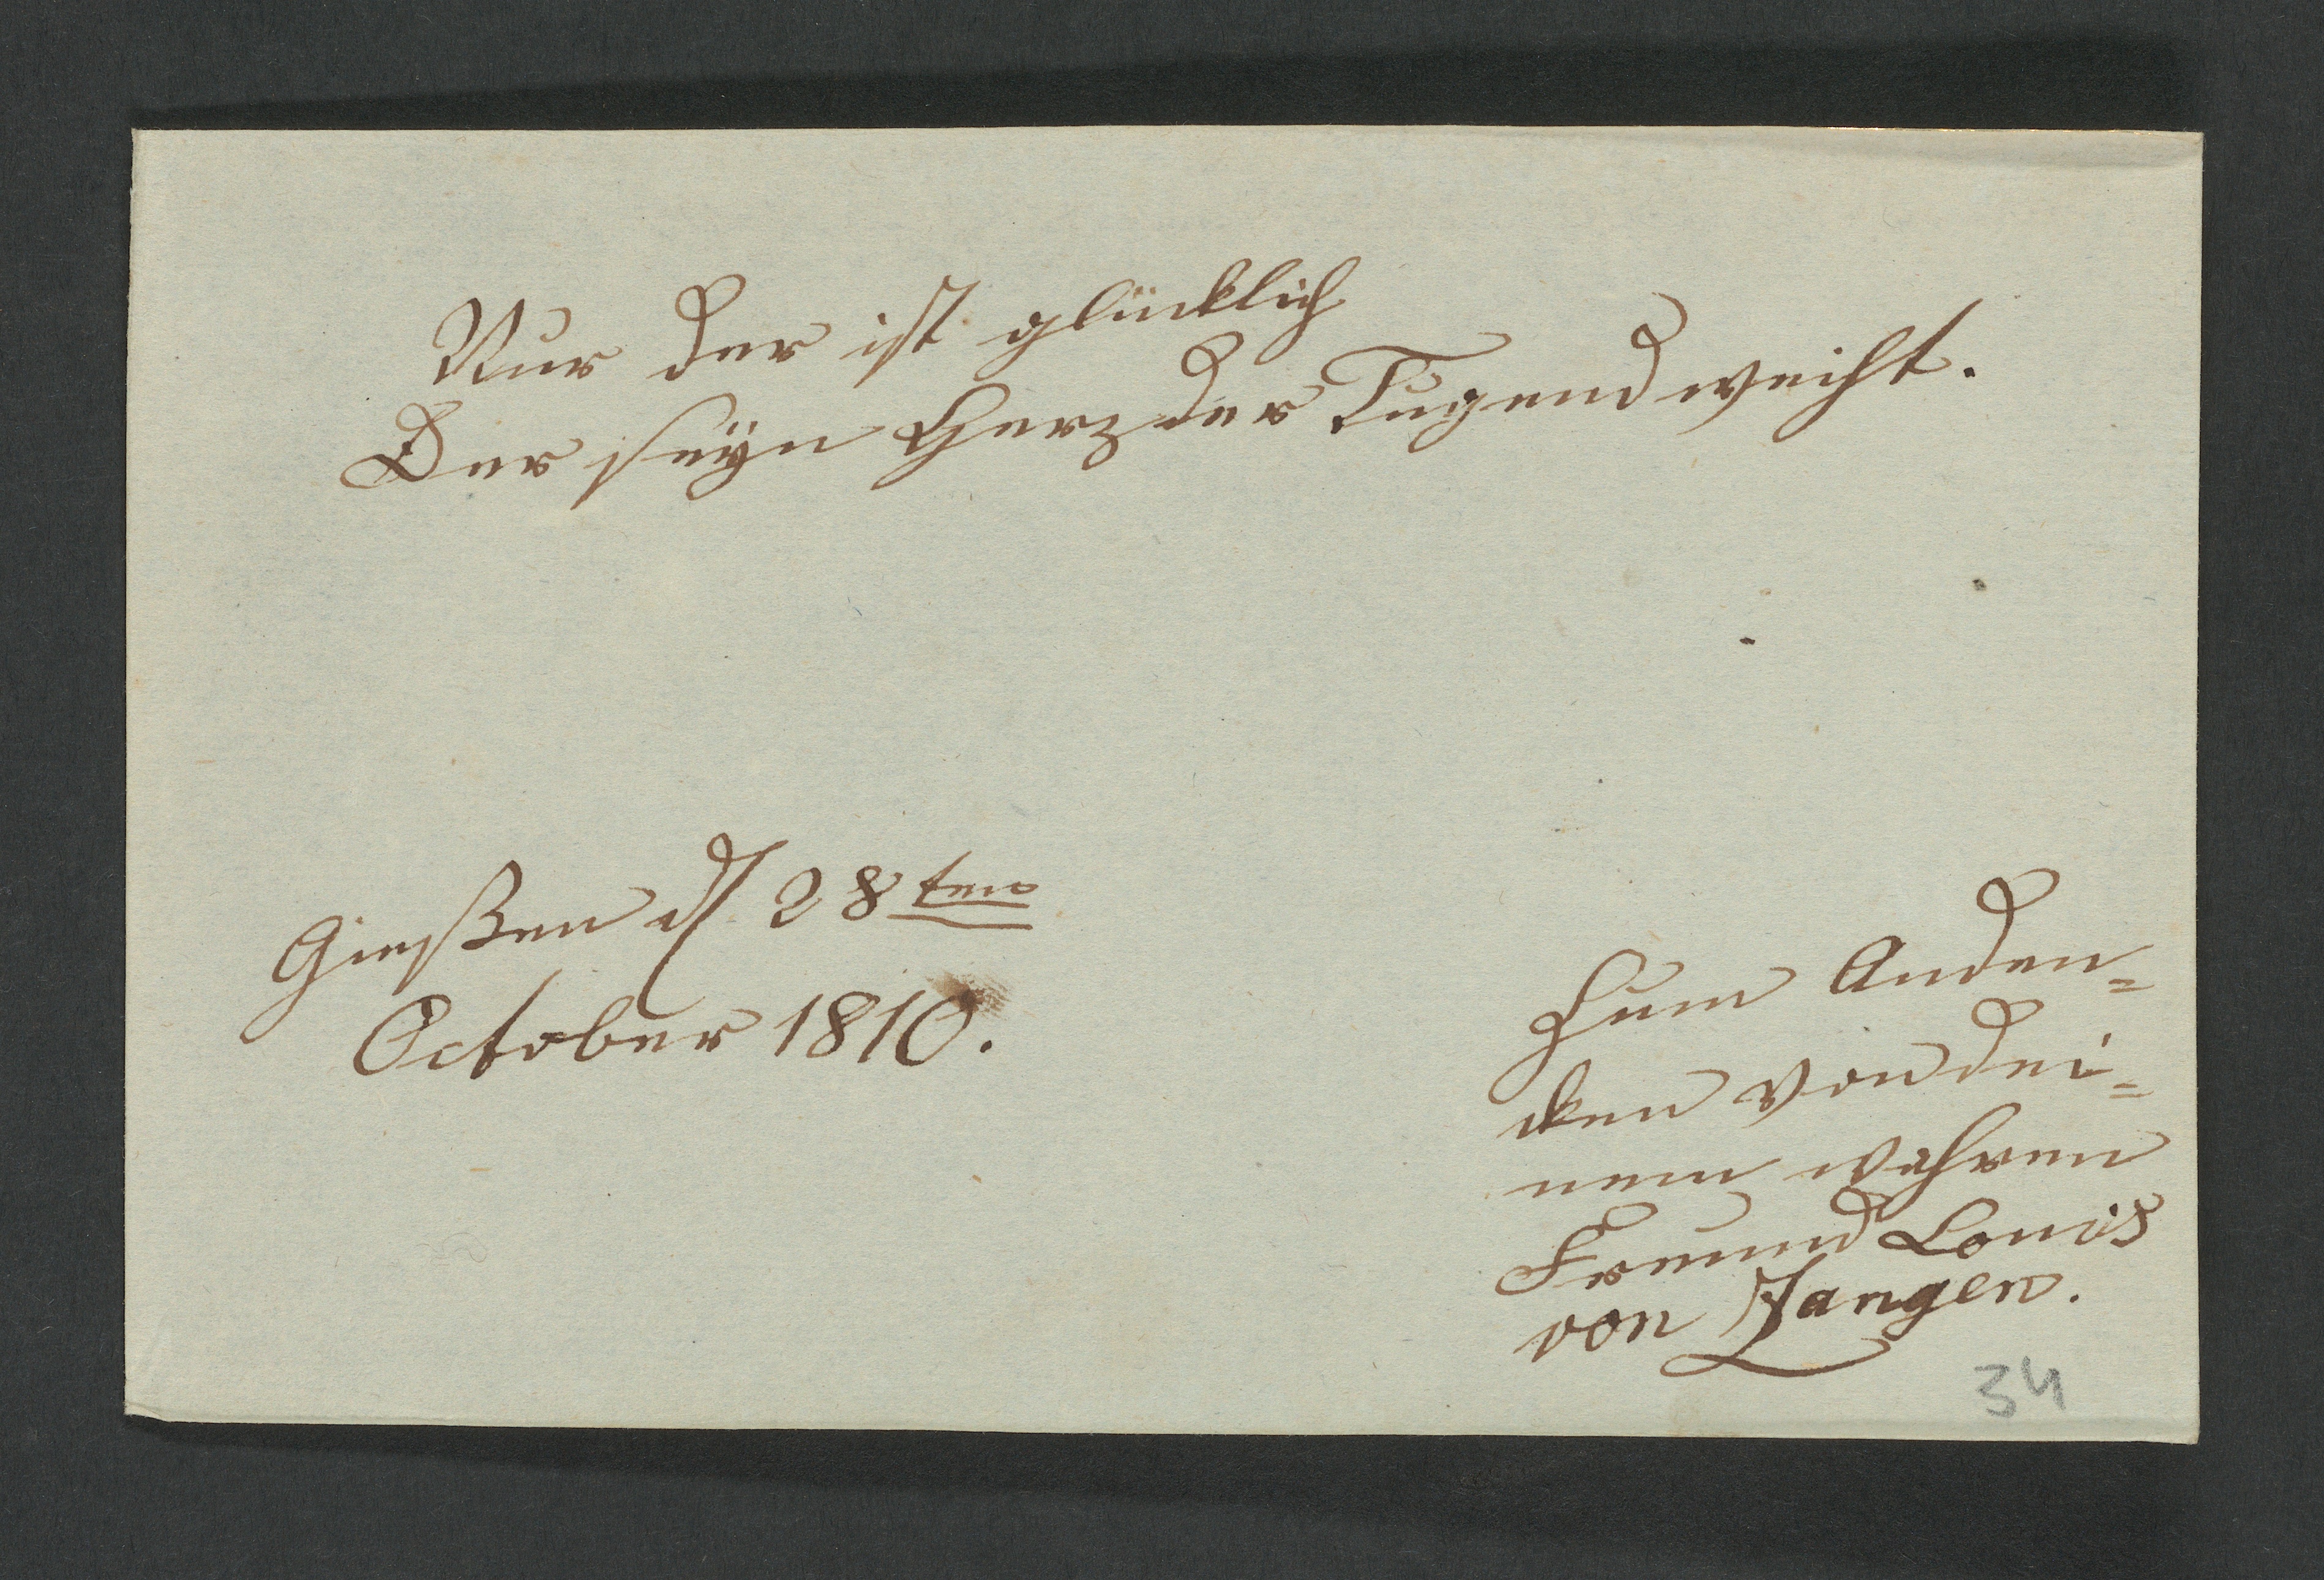 Nur der ist glücklich
Der seyn Herz der Tugend weiht.
Gießen d 28ten
October 1810.
Zum Anden=
cken von dei=
nem wahren
Freund Louis
von Zangen.
34